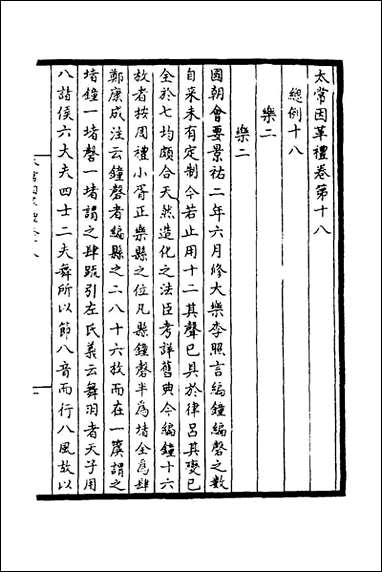 太常因革禮卷第十八
總例十八
樂二
樂二
國朝會要景祐二年六月修大樂李照言編鐘編磬之數
自來未有定制今若止用十二其聲已具於律呂其變已
全於七均頗合天然造化之法臣考詳舊典今編鐘十六
故者按周禮小胥正樂縣之位凡縣鐘磬半為堵全為肆
鄭康成注云鐘磬者編縣之二八十六枚而在一簴謂之
堵鐘一堵磬一堵謂之肆疏引左氏義云舞羽者天子用
八諸侯六大夫四士二夫舞所以節八音而行八風故以